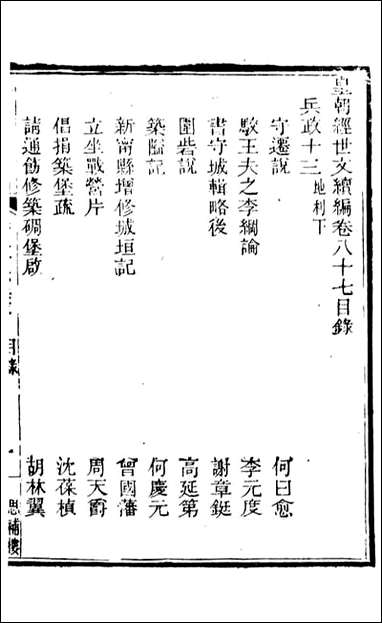 皇朝經世文續編卷八十七目錄
兵政十三地利下
守遷說 何曰愈
駁王夫之李綱論 李元度
書守城輯略後 謝章鋌
圍砦說 高延第
築隘記 何慶元
新甯縣增修城垣記 曾國藩
立坐戰營片 周天爵
倡捐築堡疏 沈葆楨
請通飭修築碉堡啟 胡林翼
目錄 一 思補樓